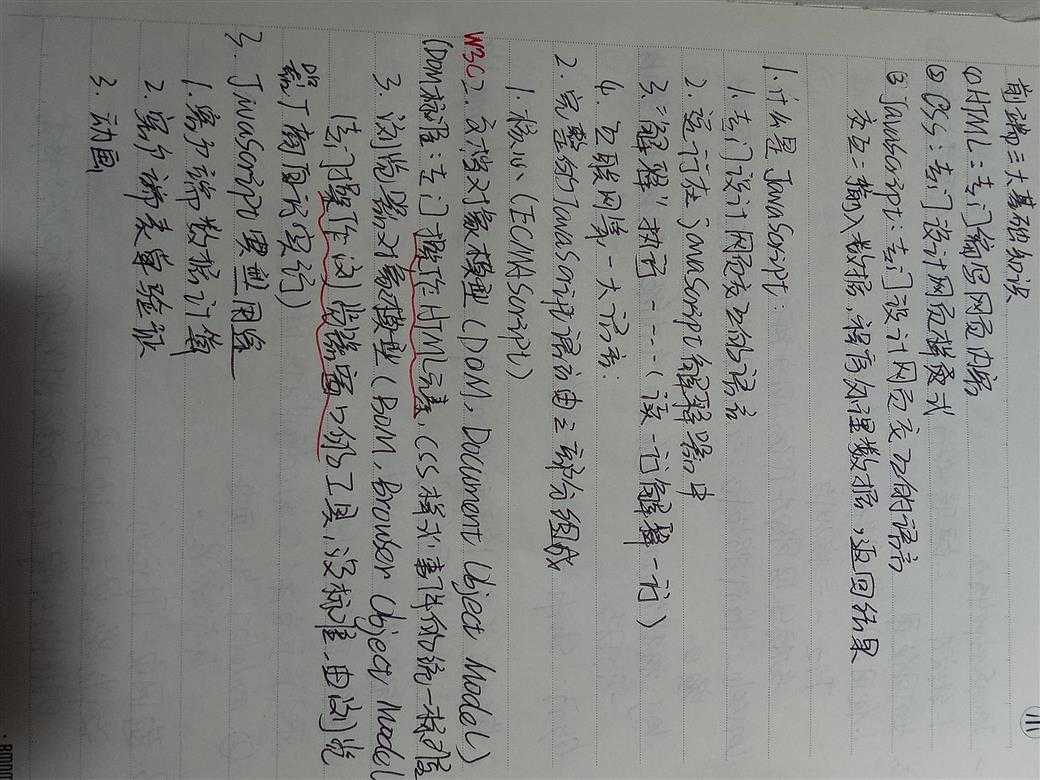 11
前端三大基础知识
①HTML：专门编写网页内容
②CSS：专门设计网页样式
③JavaScript：专门设计网页交互的语言
交互：输入数据，程序处理数据，返回结果
1.什么是JavaScript：
1.专门设计网页交互的语言
2.运行在javaScript解释器中
3."解释"执行----(读一行解释一行)
4.互联网第一大语言.
2.完整的JavaScript语言由三部分组成
1.核心(ECMAScript)
W3C2.文档对象模型(DOM, Document Object Model)
(DOM标准：专门操作HTML元素,CSS样式,事件的统一标准
3.浏览器对象模型(BOM, Browser Object Model
专门操作浏览器窗口的工具,没标准.由浏览
器厂商自己实行)
3.JavaScript典型用途
1.客户端数据计算
2.客户端表单验证
3.动画